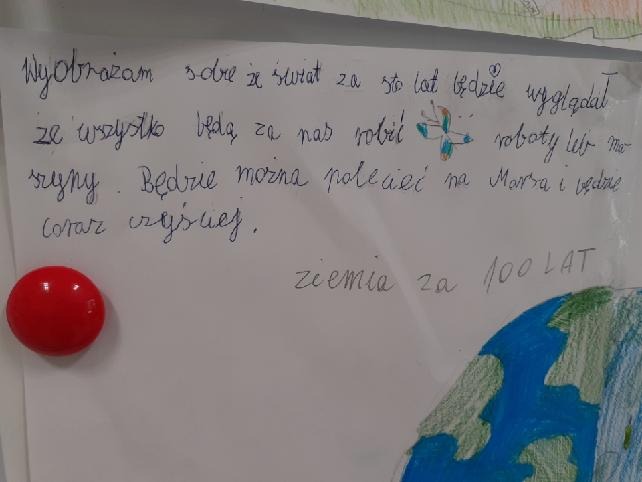 Wyobrażam sobie że świat za sto lat będzie wyglądał
że wszystko będą za nas robić roboty lub ma-
szyny. Będzie można polecieć na Marsa i będzie
coraz czyściej.
ziemia za 100 LAT